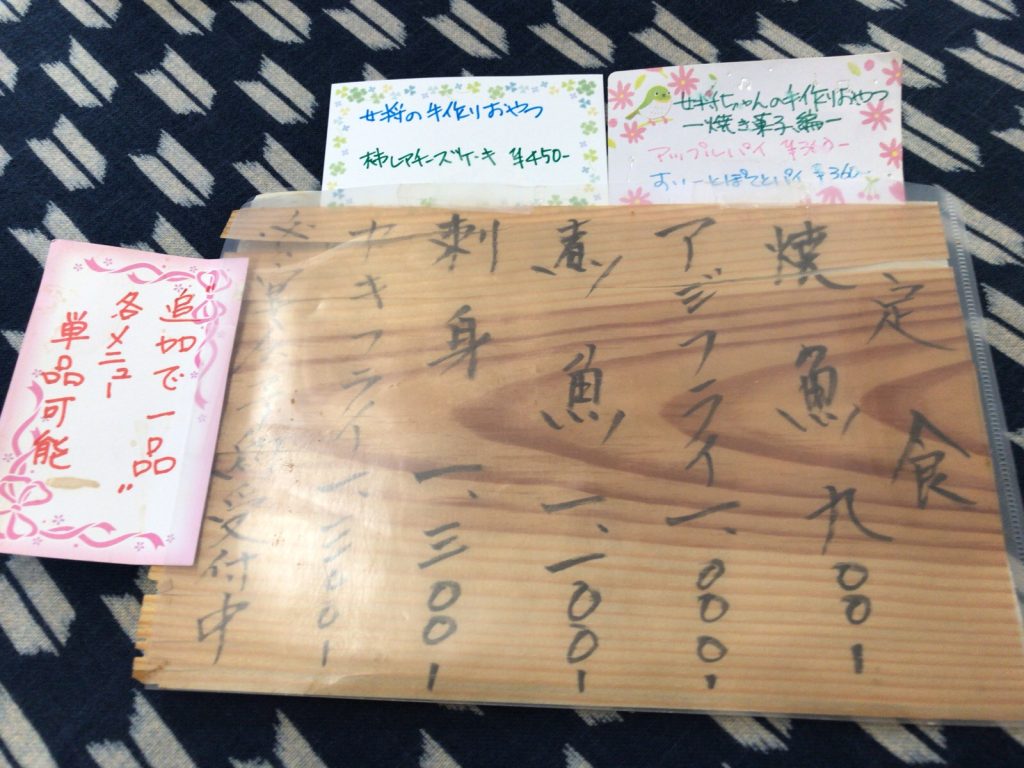 女将の手作りおやつ
柿レアチーズケーキ ¥450-
女将ちゃんの手作りおやつ
ー焼き菓子編ー
アップルパイ ¥360-
すいーとぽてとパイ ¥360-
定食
焼魚 九〇〇-
アジフライ 一、〇〇〇-
煮魚 一、一〇〇-
刺身 一、三〇〇-
カキフライ 一、三〇〇-
受付中
"追加で一品"
各メニュー
単品可能